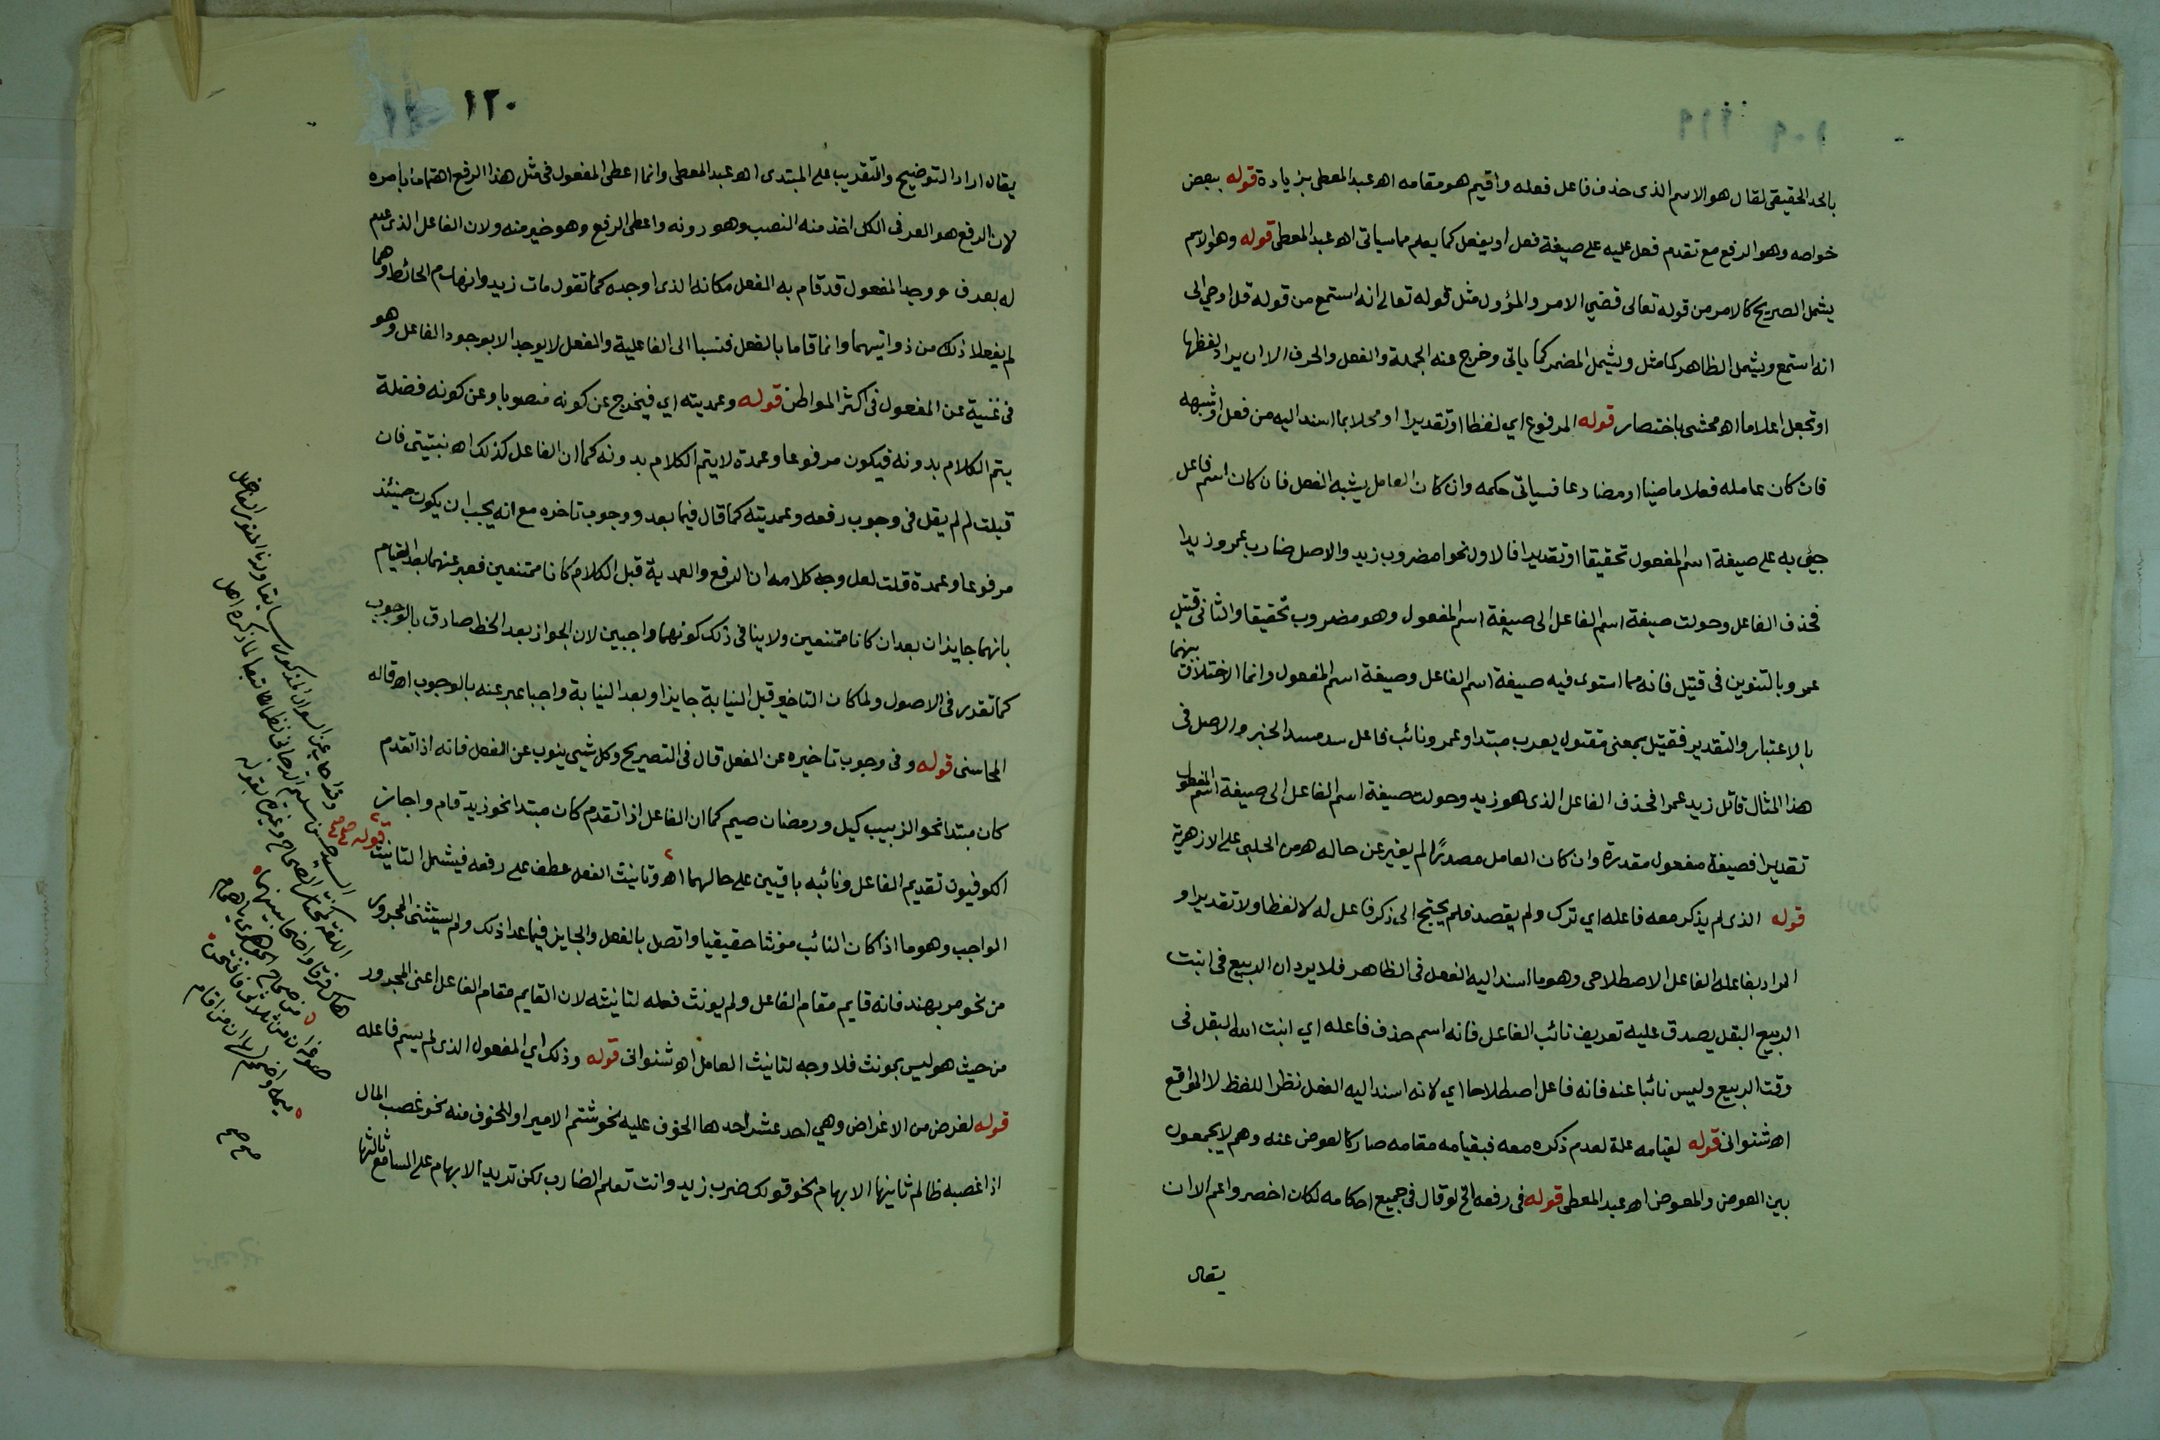 بالحد الحقيقي لقال هو الاسم الذى حذف فاعل فعله واقيم هو مقامه اهـ عبد المعطى بزيادة قوله ببعض
خواصه وهو الرفع مع تقدم فعل عليه على صيغة فعل او يفعل كما يعلم مما سياتى اهـ عبد المعطى قوله وهو الاسم
يشمل الصريح كالامر من قوله تعالى قضي الامر والمؤول مثل قوله تعالى انه استمع من قوله قل اوحي الى
انه استمع ويشمل الظاهر كما مثل ويشمل المضمر كما ياتى وخرج عنه الجملة والفعل والحرف الا ان يراد لفظها
او تجعل اعلاما اهـ محشى باختصار قوله المرفوع اي لفظا او تقديرا او محلا بما اسند اليه من فعل او شبهه
فان كان عامله فعلا ماضيا او مضارعا فسياتى حكمه وان كان العامل يشبه الفعل فان كان اسم فاعل
جيء به على صيغة اسم المفعول تحقيقا او تقديرا فالاول نحو امضروب زيد والاصل ضارب عمرو زيدا
فحذف الفاعل وحولت صيغة اسم الفاعل الى صيغة اسم المفعول وهو مضروب تحقيقا والثانى قتيل
عمرو بالتنوين فى قتيل فانه مما استوى فيه صيغة اسم الفاعل وصيغة اسم المفعول وانما الاختلاف بينهما
بالاعتبار والتقدير فقتيل بمعنى مقتول يعرب مبتدا وعمرو نائب فاعل سد مسد الخبر والاصل فى
هذا المثال قاتل زيد عمرا فحذف الفاعل الذى هو زيد وحولت صيغة اسم الفاعل الى صيغة اسم المفعول
تقديرا فصيغة مفعول مقدرة وان كان العامل مصدرًا لم يغير عن حاله هو من الحلبى على الازهرية
قوله الذى لم يذكر معه فاعله اي ترك ولم يقصد فلم يحتج الى ذكر فاعل له لا لفظا ولا تقديرا و
المراد بفاعله الفاعل الاصطلاحى وهو ما اسند اليه الفعل فى الظاهر فلا يرد ان الربيع فى انبت
الربيع البقل يصدق عليه تعريف نائب الفاعل فانه اسم حذف فاعله اي انبت الله البقل فى
وقت الربيع وليس نائبا عنه فانه فاعل اصطلاحا اي لانه اسند اليه الفعل نظرا للفظ لا للواقع
اهـ شنوانى قوله لقيامه علة لعدم ذكره معه فبقيامه مقامه صار كالعوض عنه وهم لا يجمعون
بين العوض والمعوض اهـ عبد المعطى قوله فى رفعه الخ لو قال فى جميع احكامه لكان اخصر واعم الا ان
يقال
١٢٠
يقال اراد التوضيح والتقريب على المبتدى اهـ عبد المعطى وانما اعطى المفعول فى مثل هذا الرفع اهتماما بامره
لان الرفع هو العرف الكل اخذ منه النصب وهو دونه واعطى الرفع وهو خير منه ولان الفاعل الذى عدم
له يعرف ووجد المفعول قد قام به الفعل مكانه الذى اوجده كما تقول مات زيد وانهدم الحائط وهما
لم يفعلا ذلك من ذواتيهما وانما قاما بالفعل فنسبا الى الفاعلية والفعل لا يوجد الا بوجود الفاعل وهو
فى غنية عن المفعول فى اكثر المواطن قوله وعمديته اي فيخرج عن كونه منصوبا وعن كونه فضلة
يتم الكلام بدونه فيكون مرفوعا وعمدة لا يتم الكلام بدونه كما ان الفاعل كذلك اهـ نبتيتى فان
قيلت لم لم يقل فى وجوب رفعه وعمديته كما قال فيما بعد ووجوب تاخره مع انه يجب ان يكون حينئذ
مرفوعا وعمدة قلت لعل وجه كلامه ان الرفع والعمدية قبل الكلام كانا ممتنعين فعبر عنهما بعد القيام
بانهما جايزان بعد ان كانا ممتنعين ولا ينافى ذلك كونهما واجبين لان الجواز بعد الحظر صادق بالوجوب
كما تقدر فى الاصول ولما كان التاخير قبل النيابة جايزا وبعد النيابة واجبا عبر عنه بالوجوب اهـ قاله
المحاسنى قوله وفى وجوب تاخيره عن الفعل قال فى التصريح وكل شيى ينوب عن الفعل فانه اذا تقدم
كان مبتدا نحو الزبيب كيل ورمضان صيم كما ان الفاعل اذا تقدم كان مبتدا نحو زيد قام واجاز
الكوفيون تقديم الفاعل ونائبه باقيين على حالهما اهـ وتانيث الفعل عطف على رفعه فيشمل التانيث
قوله صح
الواجب وهو ما اذا كان النائب مؤنثا حقيقيا واتصل بالفعل والجايز فيما عدا ذلك ولم يستثنى المجرور
من نحو مر بهند فانه قايم مقام الفاعل ولم يونث فعله لتانيثه لان القايم مقام الفاعل اعنى المجرور
من حيث هو ليس بمونث فلا وجه لتانيث العامل اهـ شنوانى قوله وذلك اي المفعول الذى لم يسم فاعله
قوله لغرض من الاغراض وهي احد عشر احدها الخوف عليه نحو شتم الامير او الخوف منه نحو غصب المال
اذا غصبه ظالم ثانيها الابهام نحو قولك ضرب زيد وانت تعلم الضارب لكن تريد الابهام على السامع ثالثها